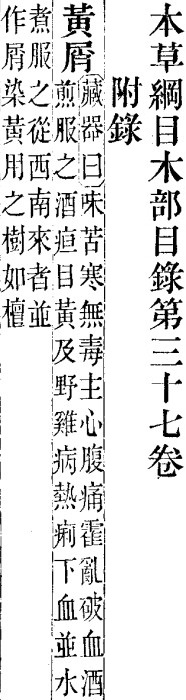 本草綱目木部目錄第三十七卷
附錄
黃屑藏器曰味苦寒無毒主心腹痛霍亂破血酒
煎服之酒疸目黃及野雞病熱痢下血並水
煮服之從西南來者並
作屑染黃用之樹如檀